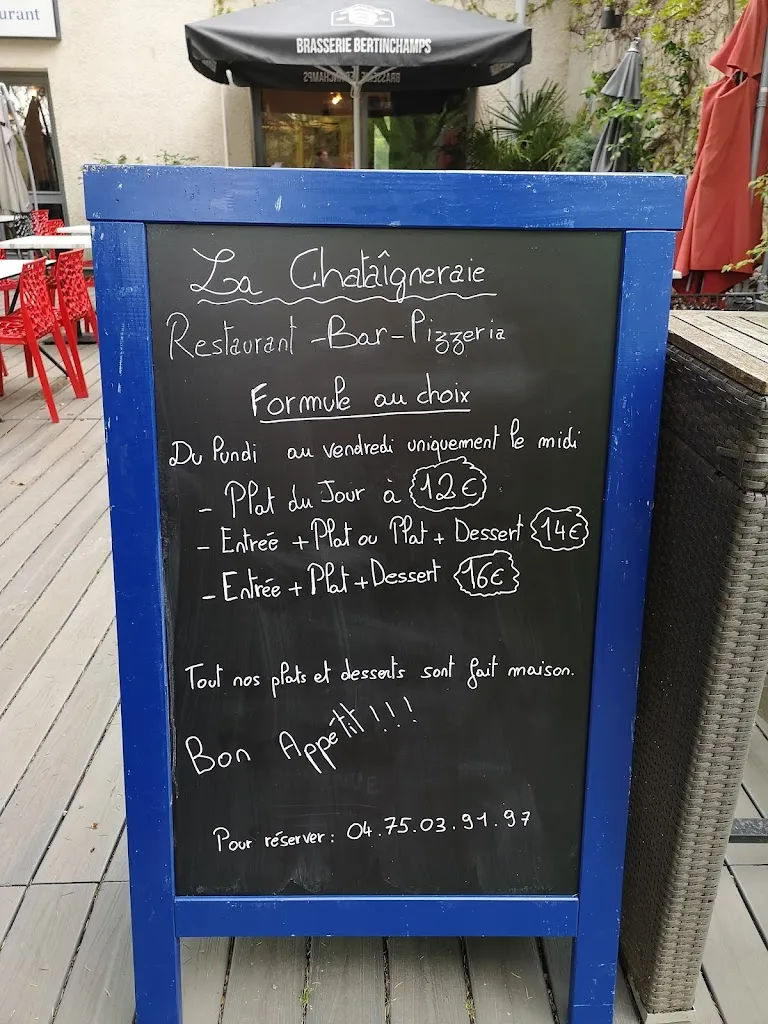 urant
BRASSERIE BERTINCHAMPS
La Chataîgneraie
Restaurant - Bar - Pizzeria
Formule au choix
Du lundi au vendredi uniquement le midi
- Plat du Jour à 12€
- Entreé + Plat ou Plat + Dessert 14€
- Entrée + Plat + Dessert 16€
Tout nos plats et desserts sont fait maison.
Bon Appétit !!!
Pour réserver : 04.75.03.91.97